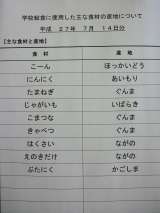 学校給食に使用した主な食材の産地について
平成 27年 7月 14日分
【主な食材と産地】
食材 産地
こーん ほっかいどう
にんにく あおもり
たまねぎ ぐんま
じゃがいも いばらき
こまつな ぐんま
きゃべつ ぐんま
はくさい ながの
えのきだけ ながの
ぶたにく かごしま